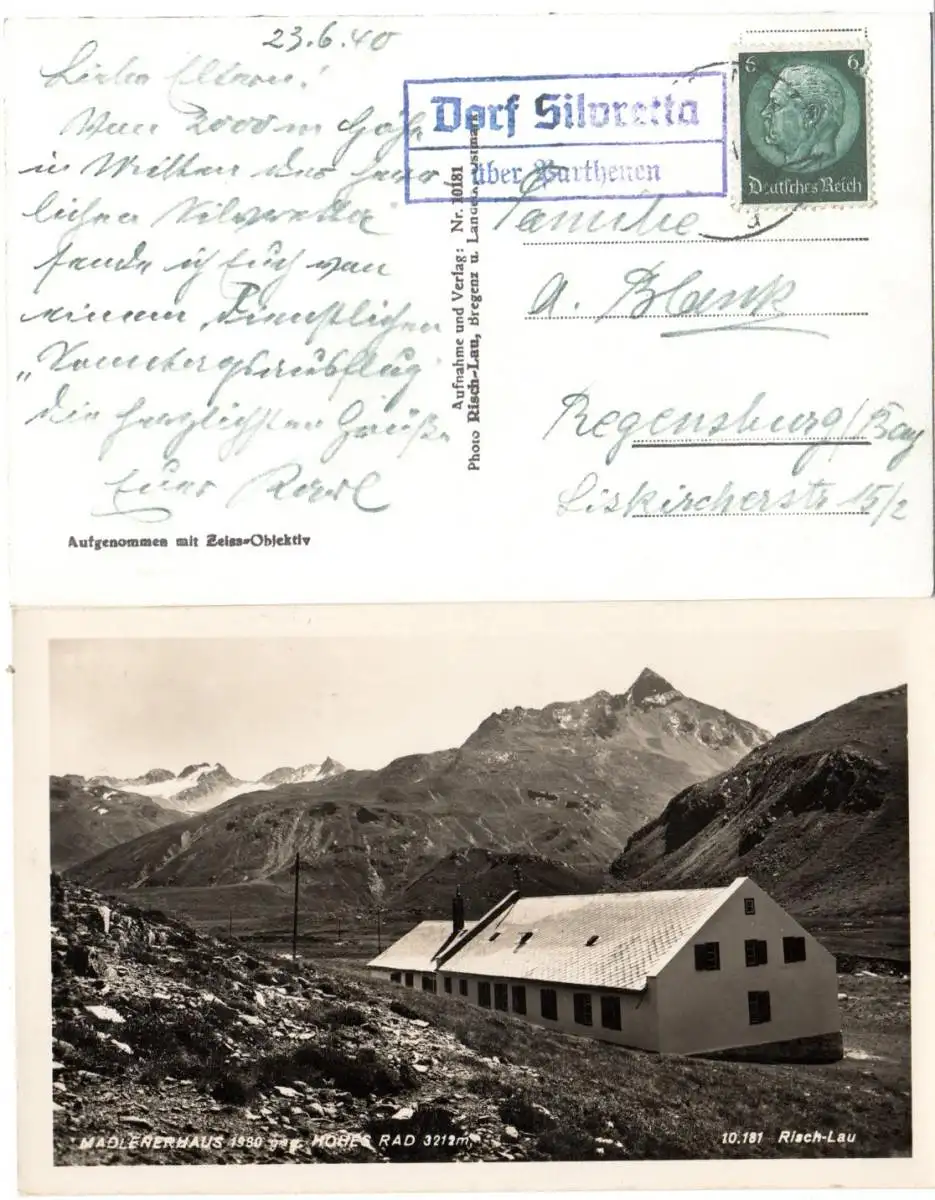 23.6.40
Liebe Eltern!
Von 2000 m Höhe
in Mitten der herr
lichen "Silvretta"
sende ich Euch von
einem Dienstlichen
„Sonntagsausflug"
die herzlichsten Grüße
Euer Karl
Aufgenommen mit Zeiss-Objektiv
Aufnahme und Verlag: Nr. 10181
Photo Risch-Lau, Bregenz u. Langen
Dorf Silvretta
über Parthenen
6 6
Deutsches Reich
Familie
A. Blank
Regensburg/Bay
Liskircherstr 15/2
MADLENERHAUS 1980 geg. HOHES RAD 3212m,
10.181 Risch-Lau